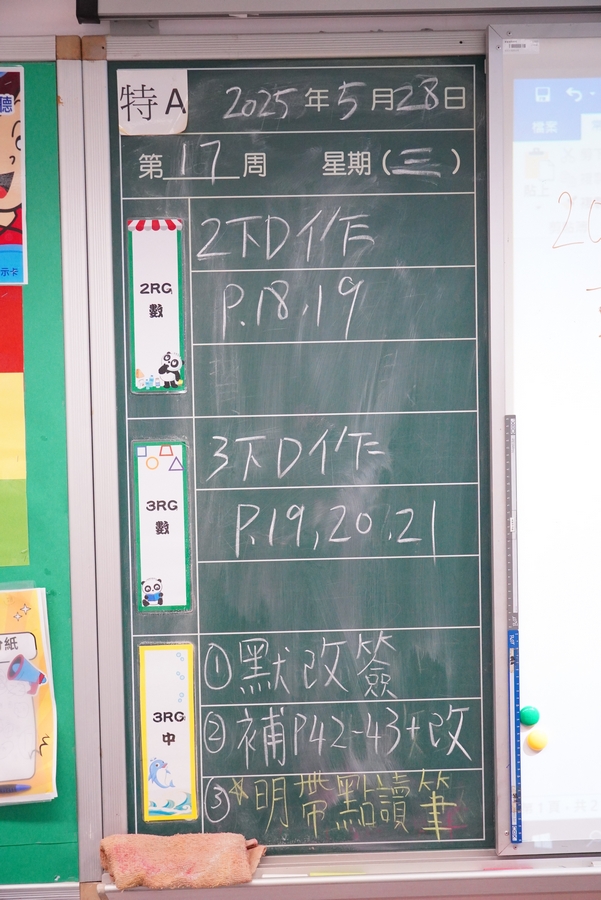 特A
2025年5月28日
第17周 星期(三)
2RG
數
2下D作
P.18,19
3RG
數
3下D作
P.19,20,21
3RG
中
①默改簽
②補P42-43+改
③*明帶點讀筆
檔案
聽
示卡
紙